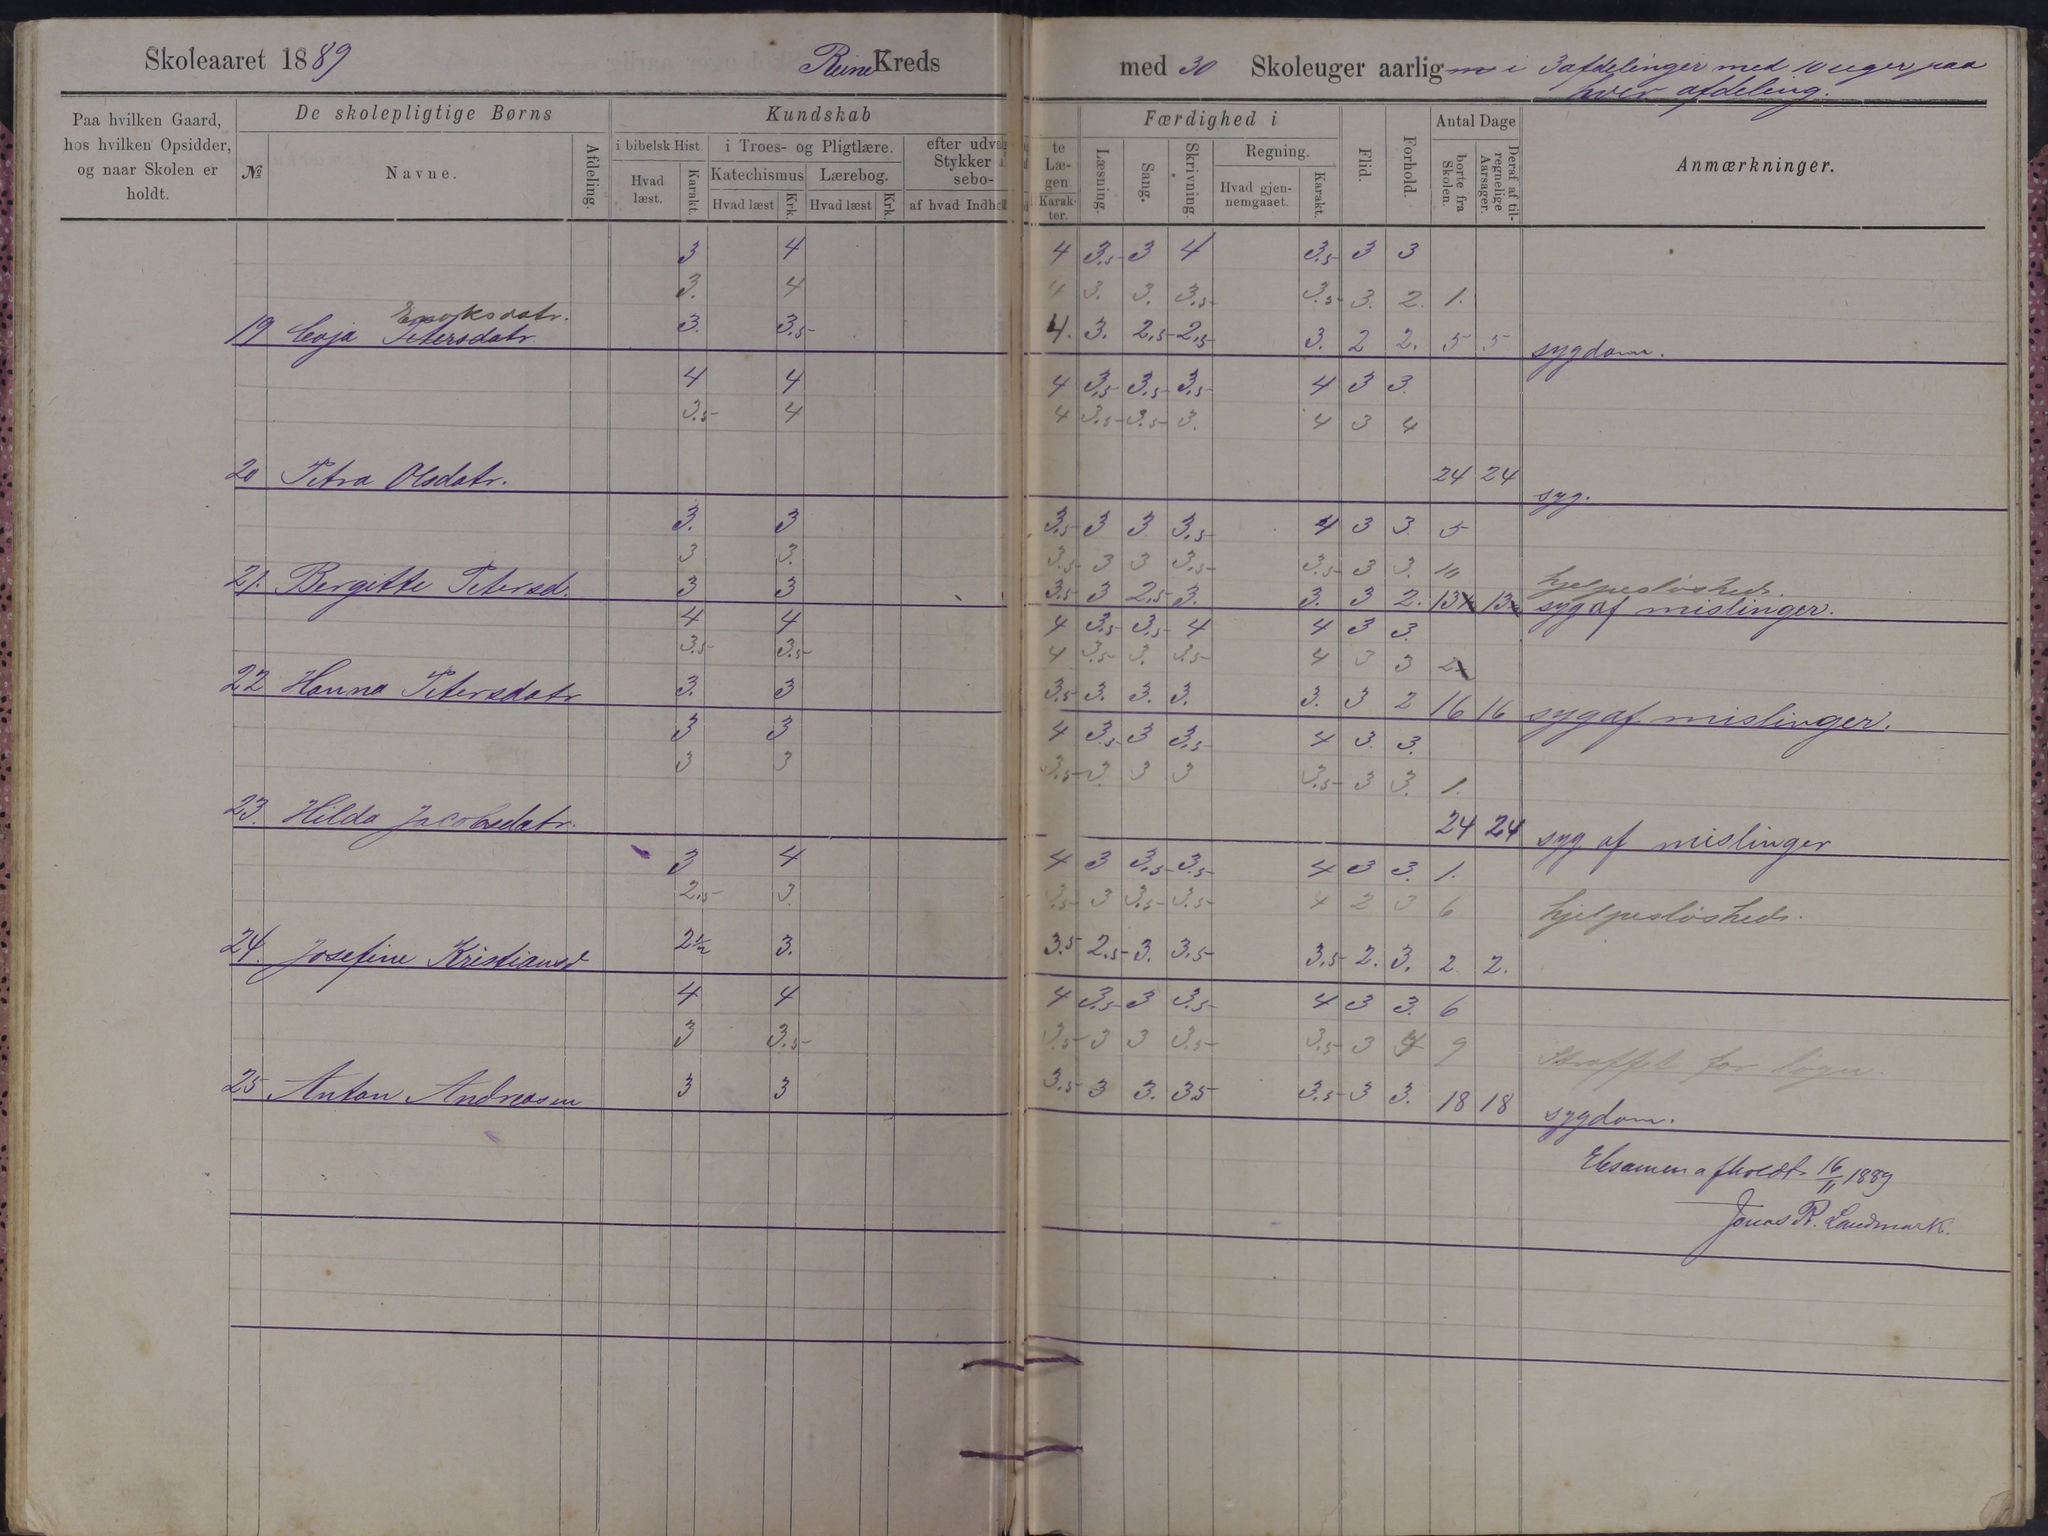 Skoleaaret 1889 Reine Kreds med 30 Skoleuger aarlig i 3 afdelinger med 10 uger paa
hver afdeling.
Paa hvilken Gaard, hos hvilken Opsidder, og naar Skolen er holdt.
De skolepligtige Børns
№ Navne. Afdeling.
Kundskab
i bibelsk Hist. i Troes- og Pligtlære. efter udv Stykker sebo-
Hvad læst. Karakt. Katechismus Lærebog.
Hvad læst Krk. Hvad læst Krk. af hvad Indhol
te Læ- gen Karak- ter.
Færdighed i
Læsning. Sang. Skrivning Regning.
Hvad gjen- nemgaaet. Karakt.
Flid. Forhold.
Antal Dage
borte fra Skolen. Deraf af til- regnelige Aarsager.
Anmærkninger.
3 4 4 3,5 3 4 3,5 3 3
3. 4 4 3. 3. 3,5 3,5 3. 2. 1.
Enoksdatr.
19 Petersdatr. 3. 3,5 4. 3. 2,5 2,5 3. 2 2. 5 5 sygdom.
4 4 4 3,5 3,5 3,5 4 3 3.
3,5 4 4 3,5 3,5 3. 4 3 4
20 Petra Olsdatr. 24 24 syg.
3. 3 3,5 3 3 3,5 4 3 3. 5
3 3. 3,5 3 3 3,5 3,5 3 3. hjelpesløshed.
21. Bergitte Petersd. 3 3 3,5 3 2,5 3. 3. 3 2. 13 13 syg af mislinger.
4 4 4 3,5 3,5 4 4 3 3.
3,5 3,5 4 3,5 3. 3,5 4 3 3 2
22 Hanna Petersdatr 3. 3 3,5 3. 3. 3. 3. 3 2 16 16 syg af mislinger.
3 3 4 3,5 3 3,5 4 3. 3.
3 3 3,5 3. 3 3 3,5 3 3. 1.
23. Hilda Jacobsdatr. 24 24 syg af mislinger
3 4 4 3 3,5 3,5 4 3 3. 1.
2,5 3. 3,5 3 3,5 3,5 4 2 3 6 hjelpesløshed.
24. Josefine Kristiansd 2½ 3. 3.5 2,5 3. 3,5 3,5 2. 3. 2. 2.
4 4 4 3,5 3 3,5 4 3 3. 6
3 3,5 3,5 3 3 3,5 3,5 3 4 9 Straffet for løgn.
25 Anton Andreasen 3 3 3,5 3 3. 3,5 3,5 3 3. 18 18 sygdom.
Eksamen afholdt 16/11 1889
Jonas R. Landmark.